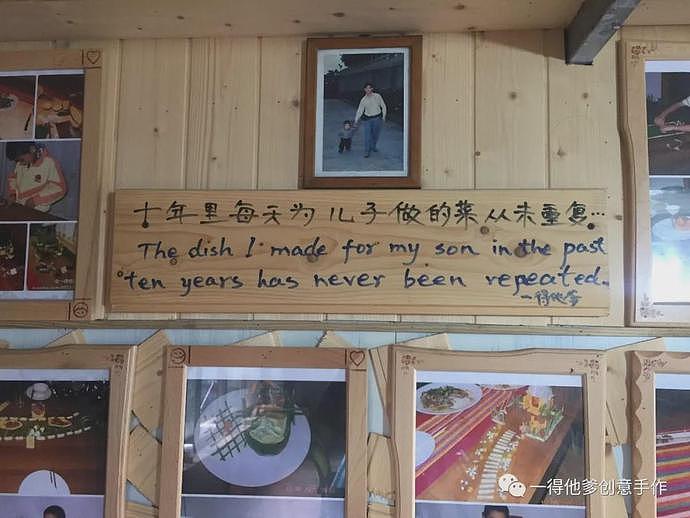 十年里每天为儿子做的菜从未重复…
The dish I made for my son in the past
ten years has never been repeated.
一得他爹
一得他爹创意手作